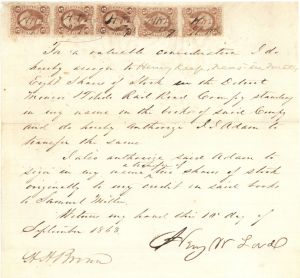 For a valuable consideration I do
hereby assign to Henry Keep,
Eight Shares of Stock in the Detroit
Monroe & Toledo Rail Road Compy standing
in my name in the books of said Compy
and do hereby authorize J J Adam to
transfer the same
I also authorize said Adam to
sign in my name a transfer of two shares of stock
originally to my credit in said books
to Samuel Miller
Witness my hand this 10th day of
September 1863
Henry W Lord
H. H. Brown